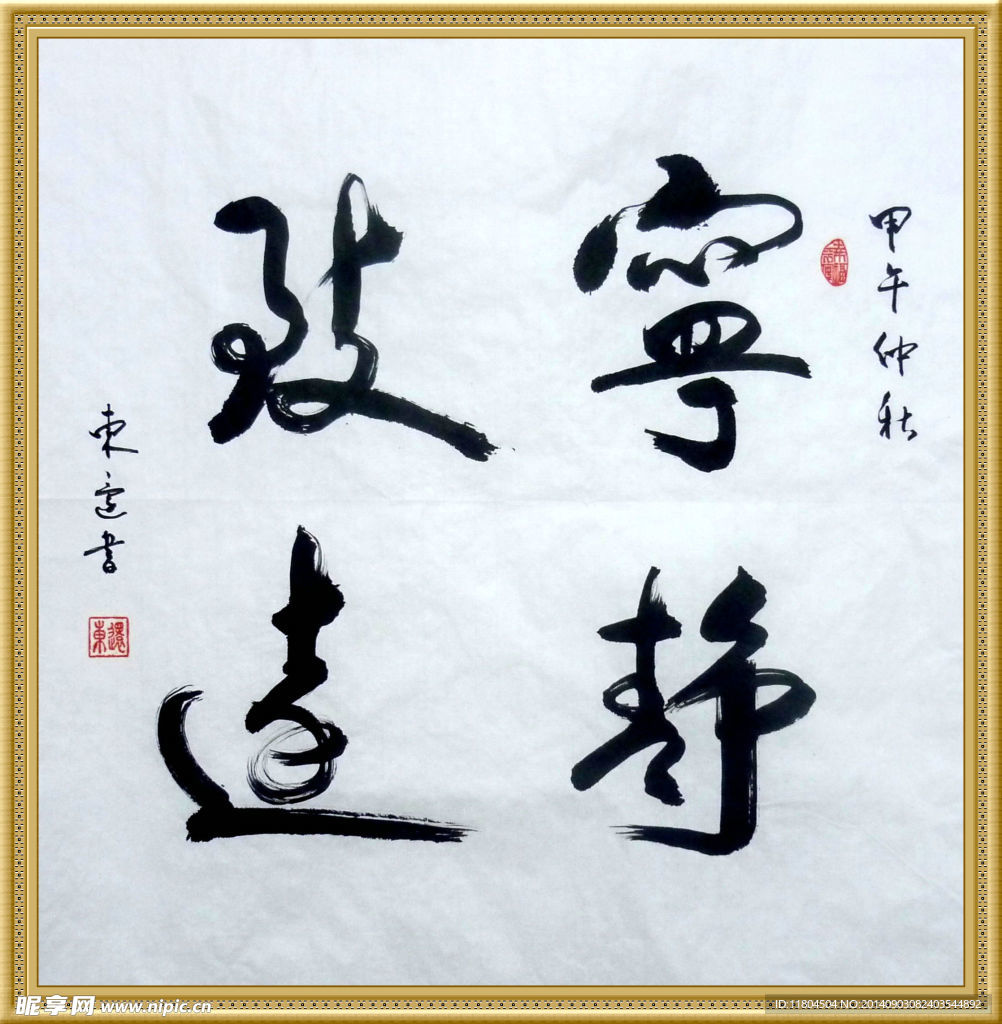 甲午仲秋
寧靜
致遠
東還書
東還
昵享网 www.nipic.cn
ID:11804504 NO:20140903082403544892